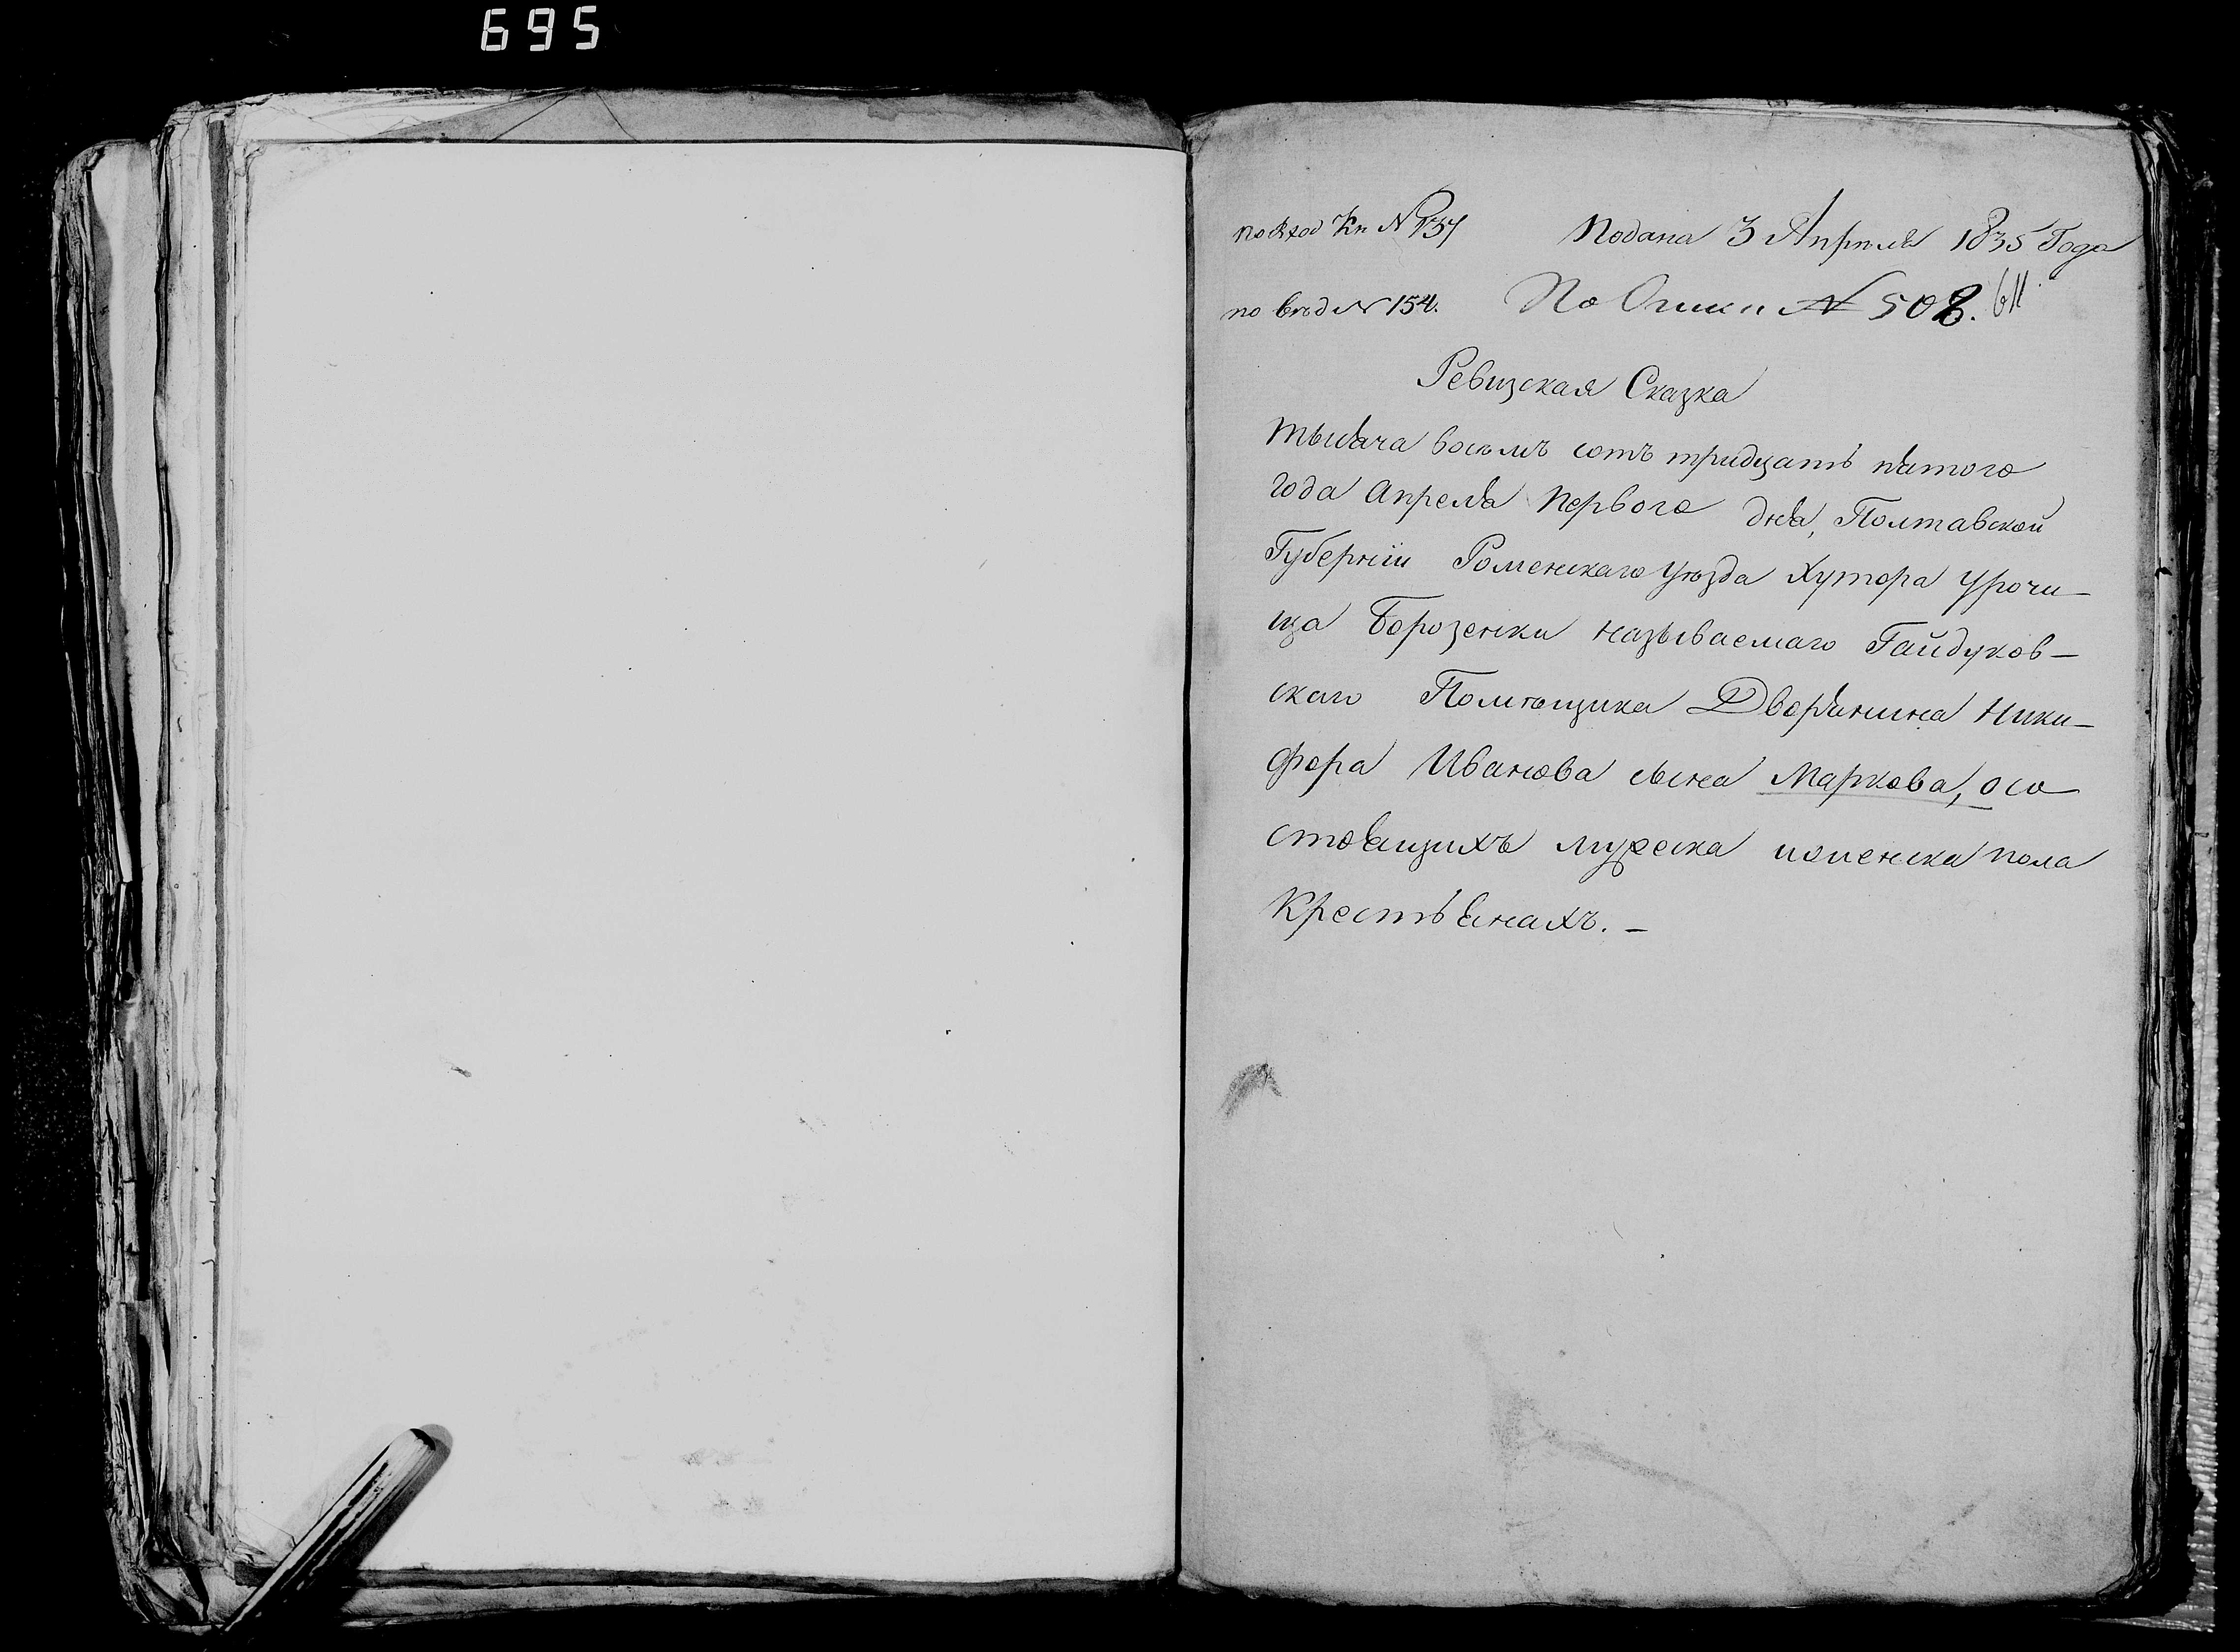 695
по Вход Кн № 137
Подана 3 Апреля 1835 Года
по вѣд № 154.
По Описи № 508. 611
Ревизская Сказка
тысяча восемъ сотъ тридцать пятого
года Апреля Первого дня, Полтавской
Губерніи Роменскаго уѣзда Хутора Урочи-
ща Борозенки называемаго Гайдуков-
скаго Помѣщика Дворянина Ники-
фора Иванова сына Маркова, о со
стоящихъ мужеска и женска пола
Крестьянахъ. -